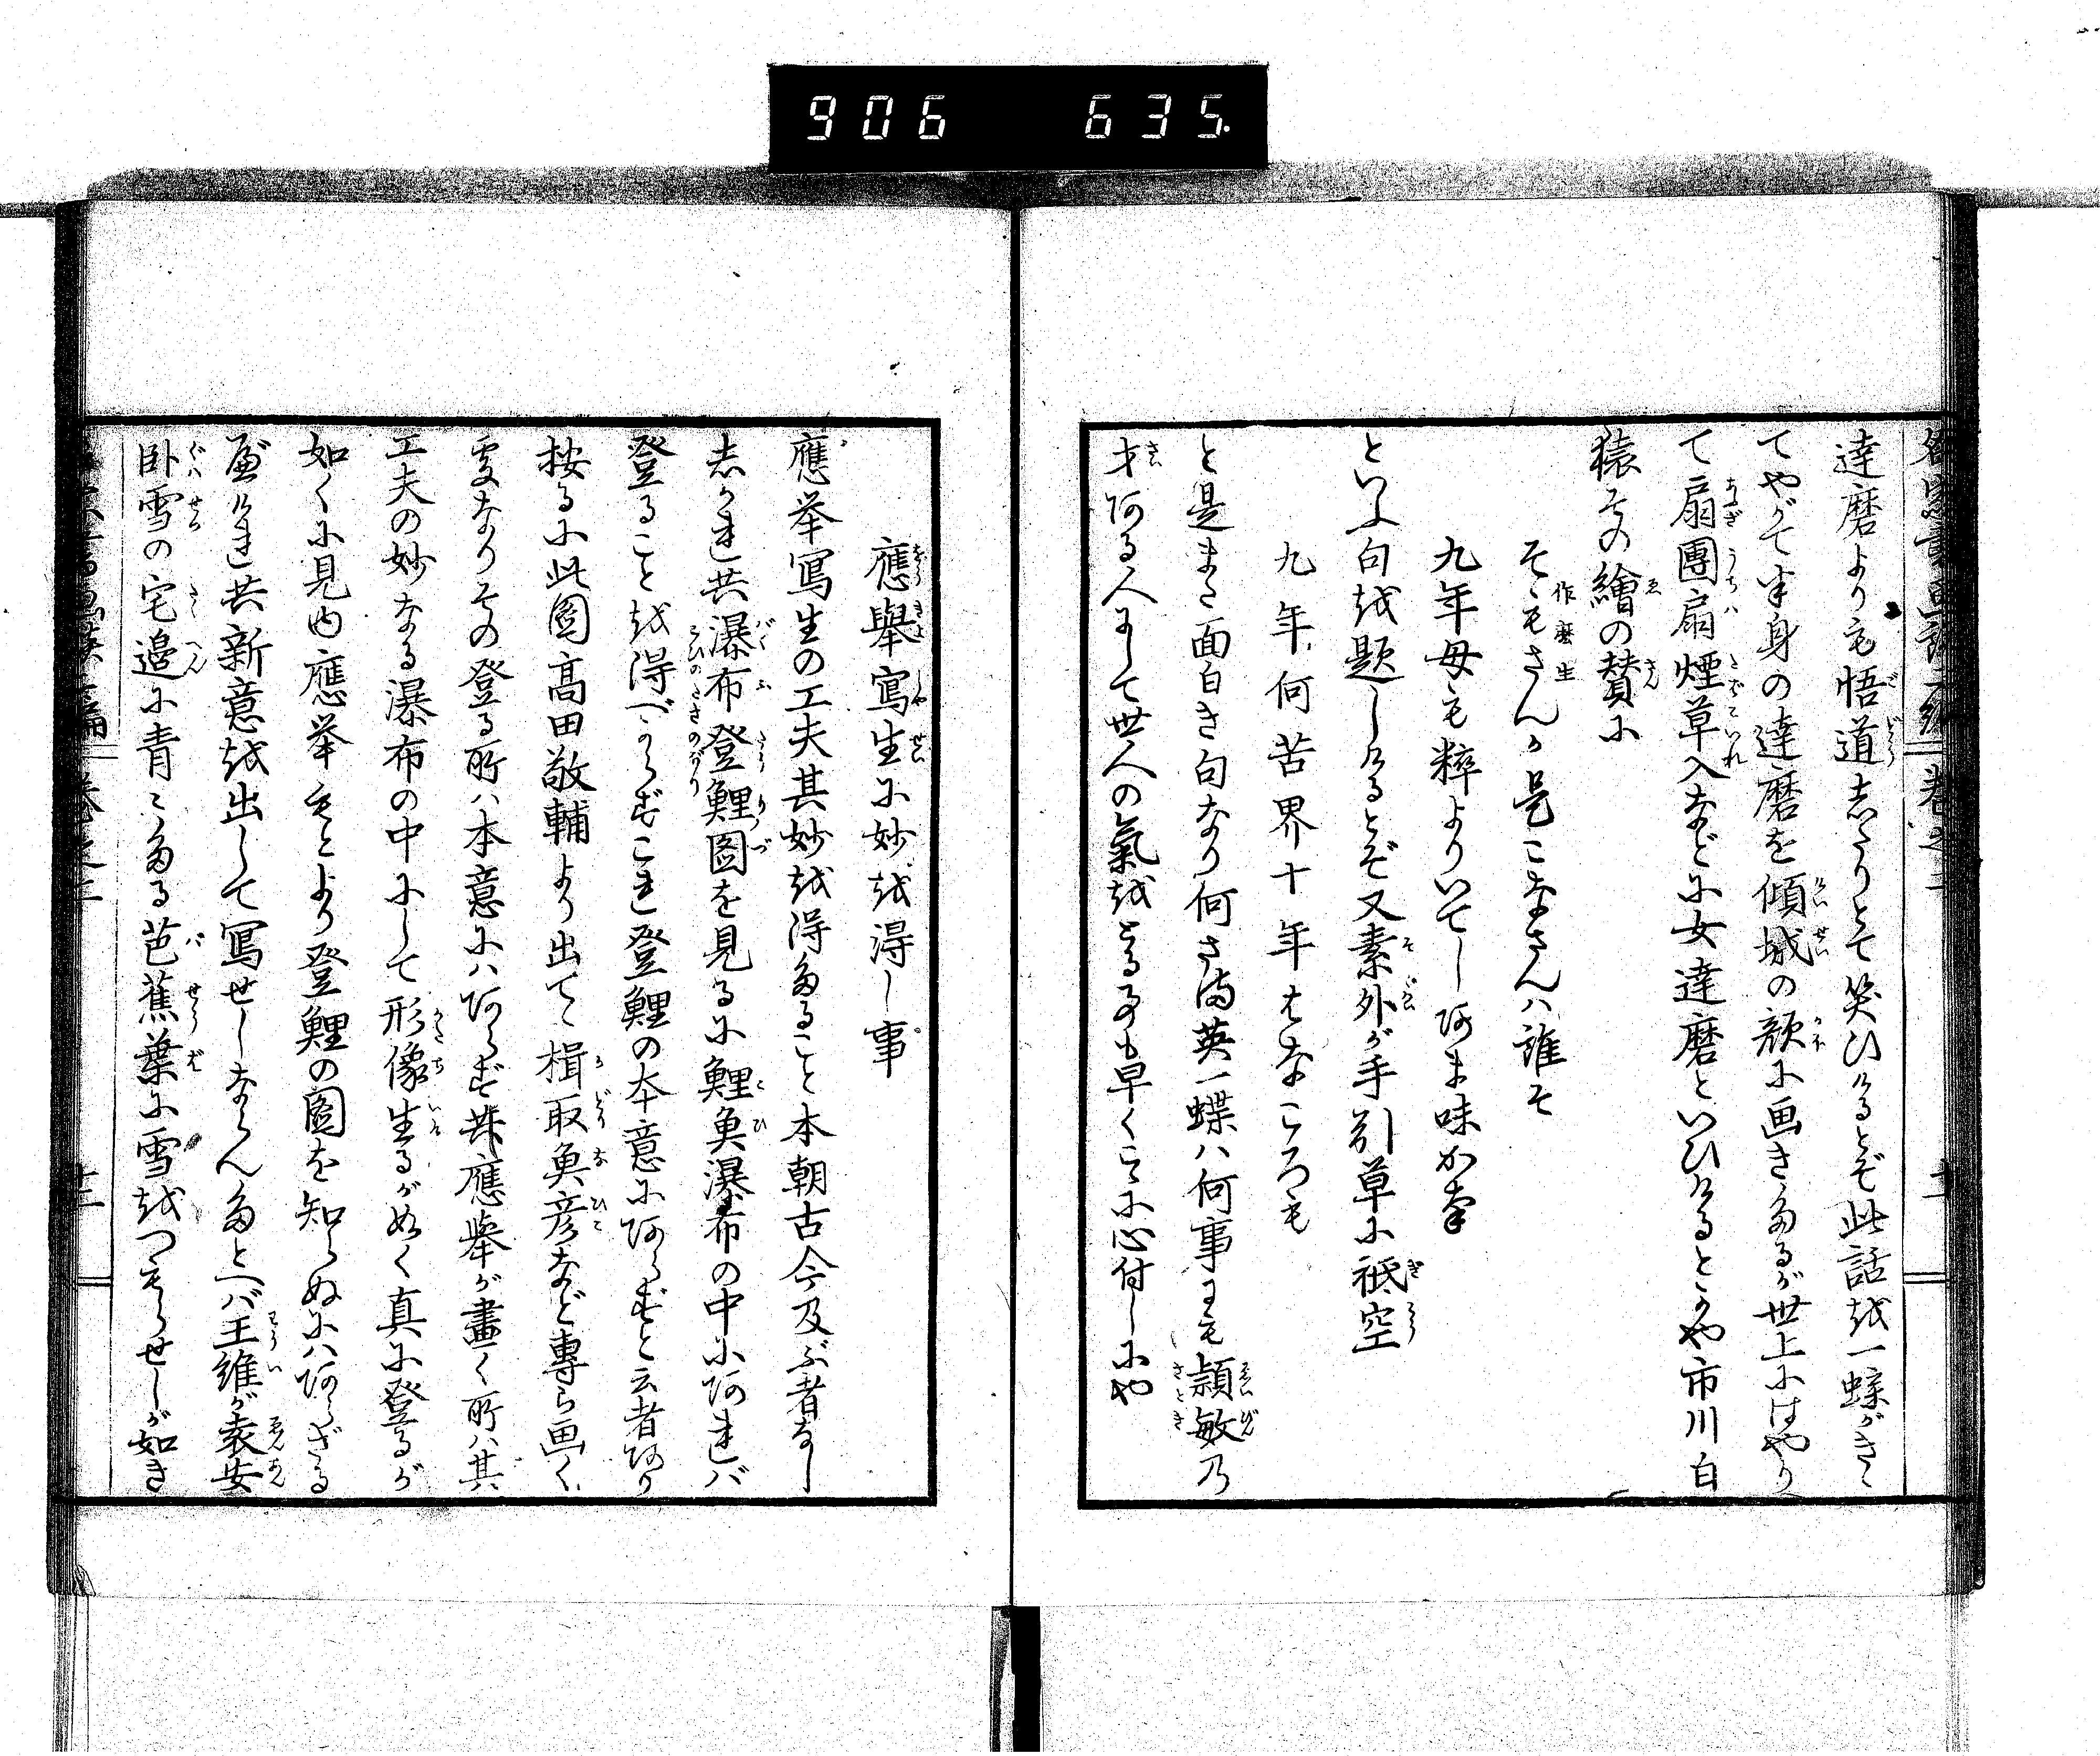 906 635.
達磨よりも悟道志たりとて笑ひけるとぞ此話越一蝶がきゝ
てやがて半身の達磨を傾城の顔に画きたるが世上にはやり
て扇團扇煙草入などに女達磨といひけるとかや市川白
猿その繪の賛に
そもさんか是こなさんハ誰そ
九年母も粋よりいでしあま味かな
といふ句越題しけるとぞ又素外が手引草に祗空
九年何苦界十年はなころも
と是また面白き句なり何さま英一蝶ハ何事にも頴敏乃
才ある人にして世人の氣越とる事も早くこゝに心付しにや
應擧寫生に妙越得し事
應挙寫生の工夫其妙越得たること本朝古今及ぶ者なし
志かれ共瀑布登鯉圖を見るに鯉魚瀑布の中にあれバ
登ること越得べからずこれ登鯉の本意にあらずと云者あり
按るに此圖髙田敬輔より出てゝ楫取魚彦など專ら画く
処なりその登る所ハ本意にハあらず共應擧が畫く所ハ其
工夫の妙なる瀑布の中にして形像生るが如く真に登るが
如くに見ゆ應挙もとより登鯉の圖を知らぬにハあらざる
べけれ共新意越出して寫せしならんたとへバ王維が袁安
卧雪の宅邉に青〻たる芭蕉葉に雪越つもらせしが如き